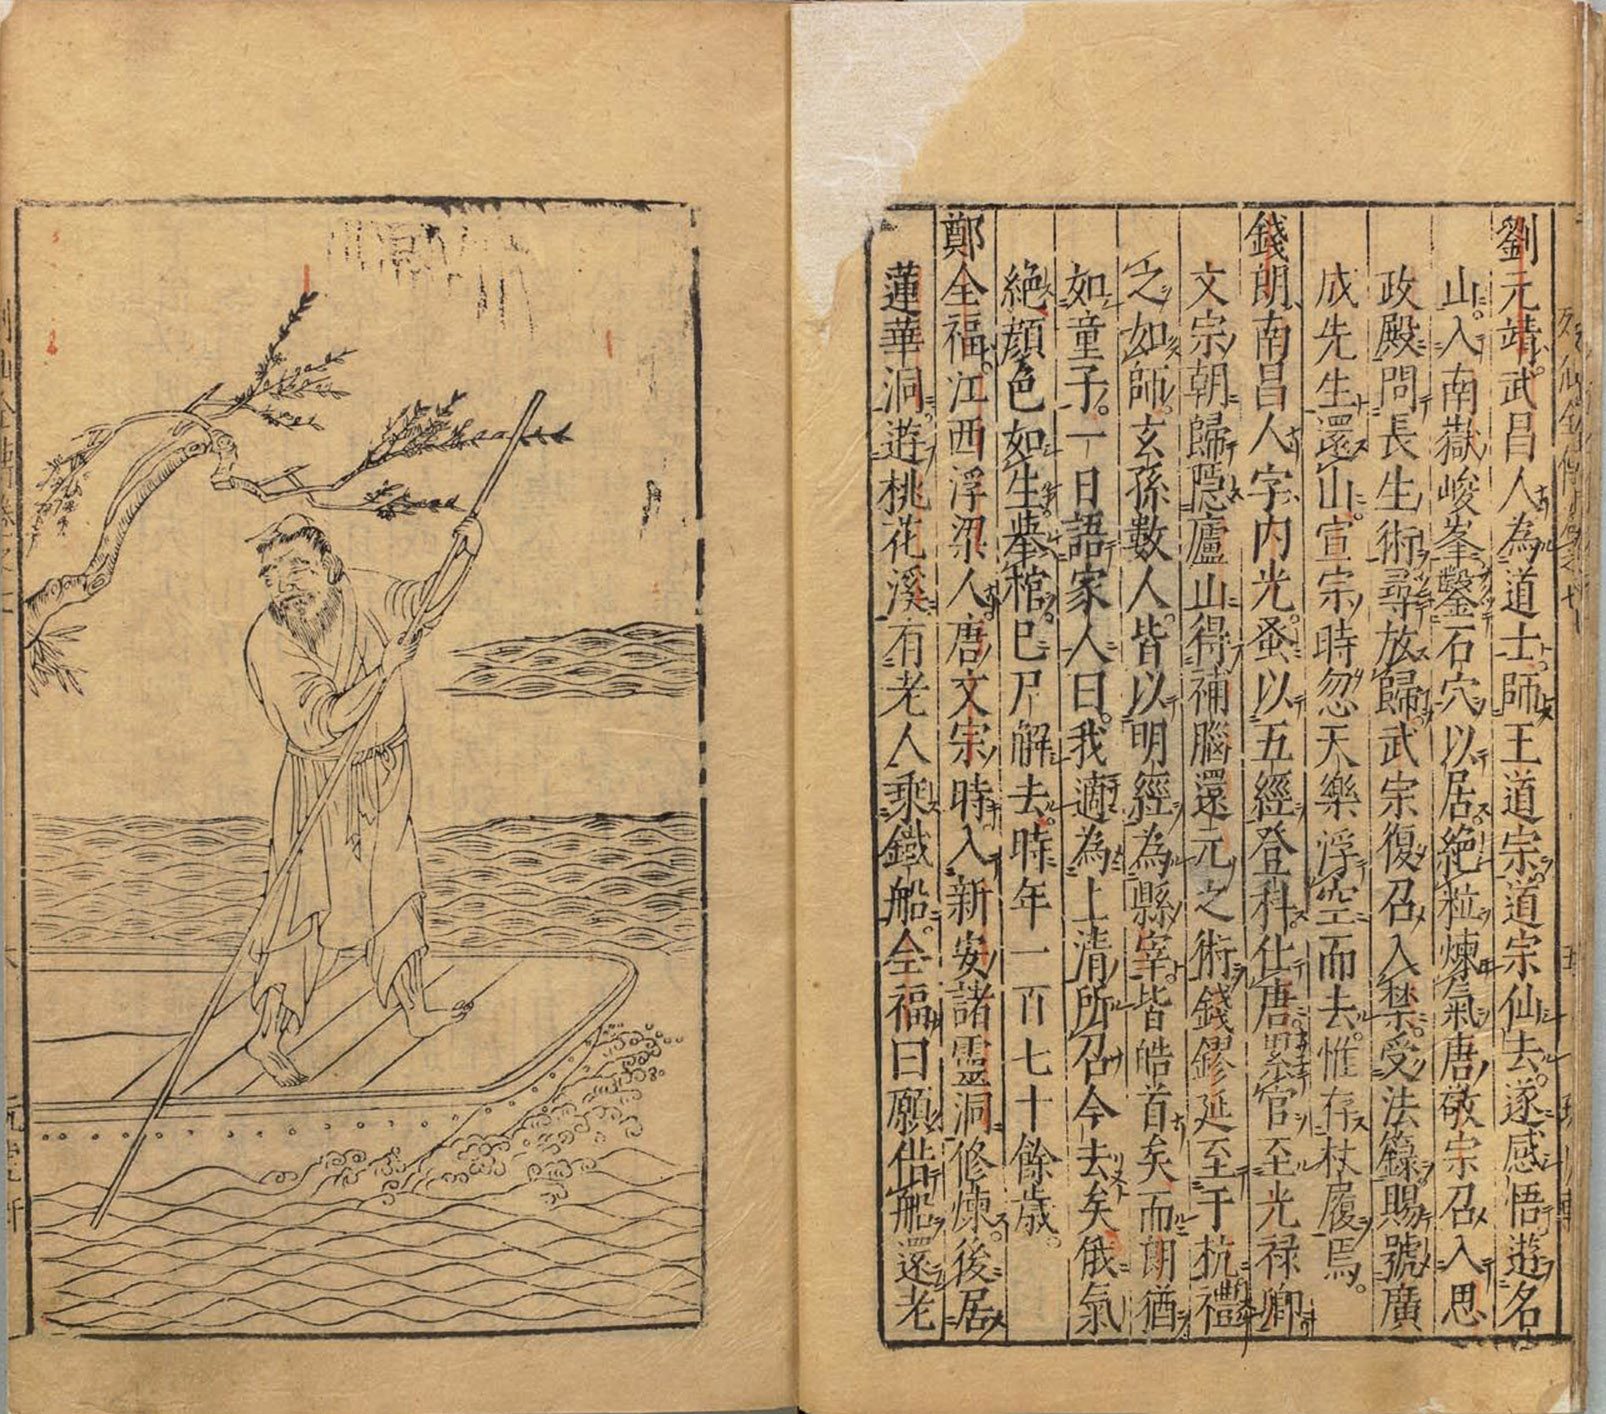 劉元靖武昌人為道士師王道宗道宗仙去遂感悟遊名
山入南嶽峻峯鑿石穴以居絶粒煉氣唐敬宗召入思
政殿問長生術尋放歸武宗復召入禁受法籙賜號廣
成先生還山宣宗時忽天樂浮空而去惟存杖履焉
錢朗南昌人字内光蚤以五經登科仕唐累官至光禄卿
文宗朝歸隠廬山得補腦還元之術錢鏐延至于杭禮
之如師玄孫數人皆以明經為縣宰皆皓首矣而朗猶
如童子一日語家人曰我適為上清所召今去矣俄氣
絶顔色如生挙棺已尸解去時年一百七十餘歳
鄭全福江西浮梁人唐文宗時入新安諸靈洞修煉後居
蓮華洞遊桃花溪有老人乘鐵船全福曰願借船還老